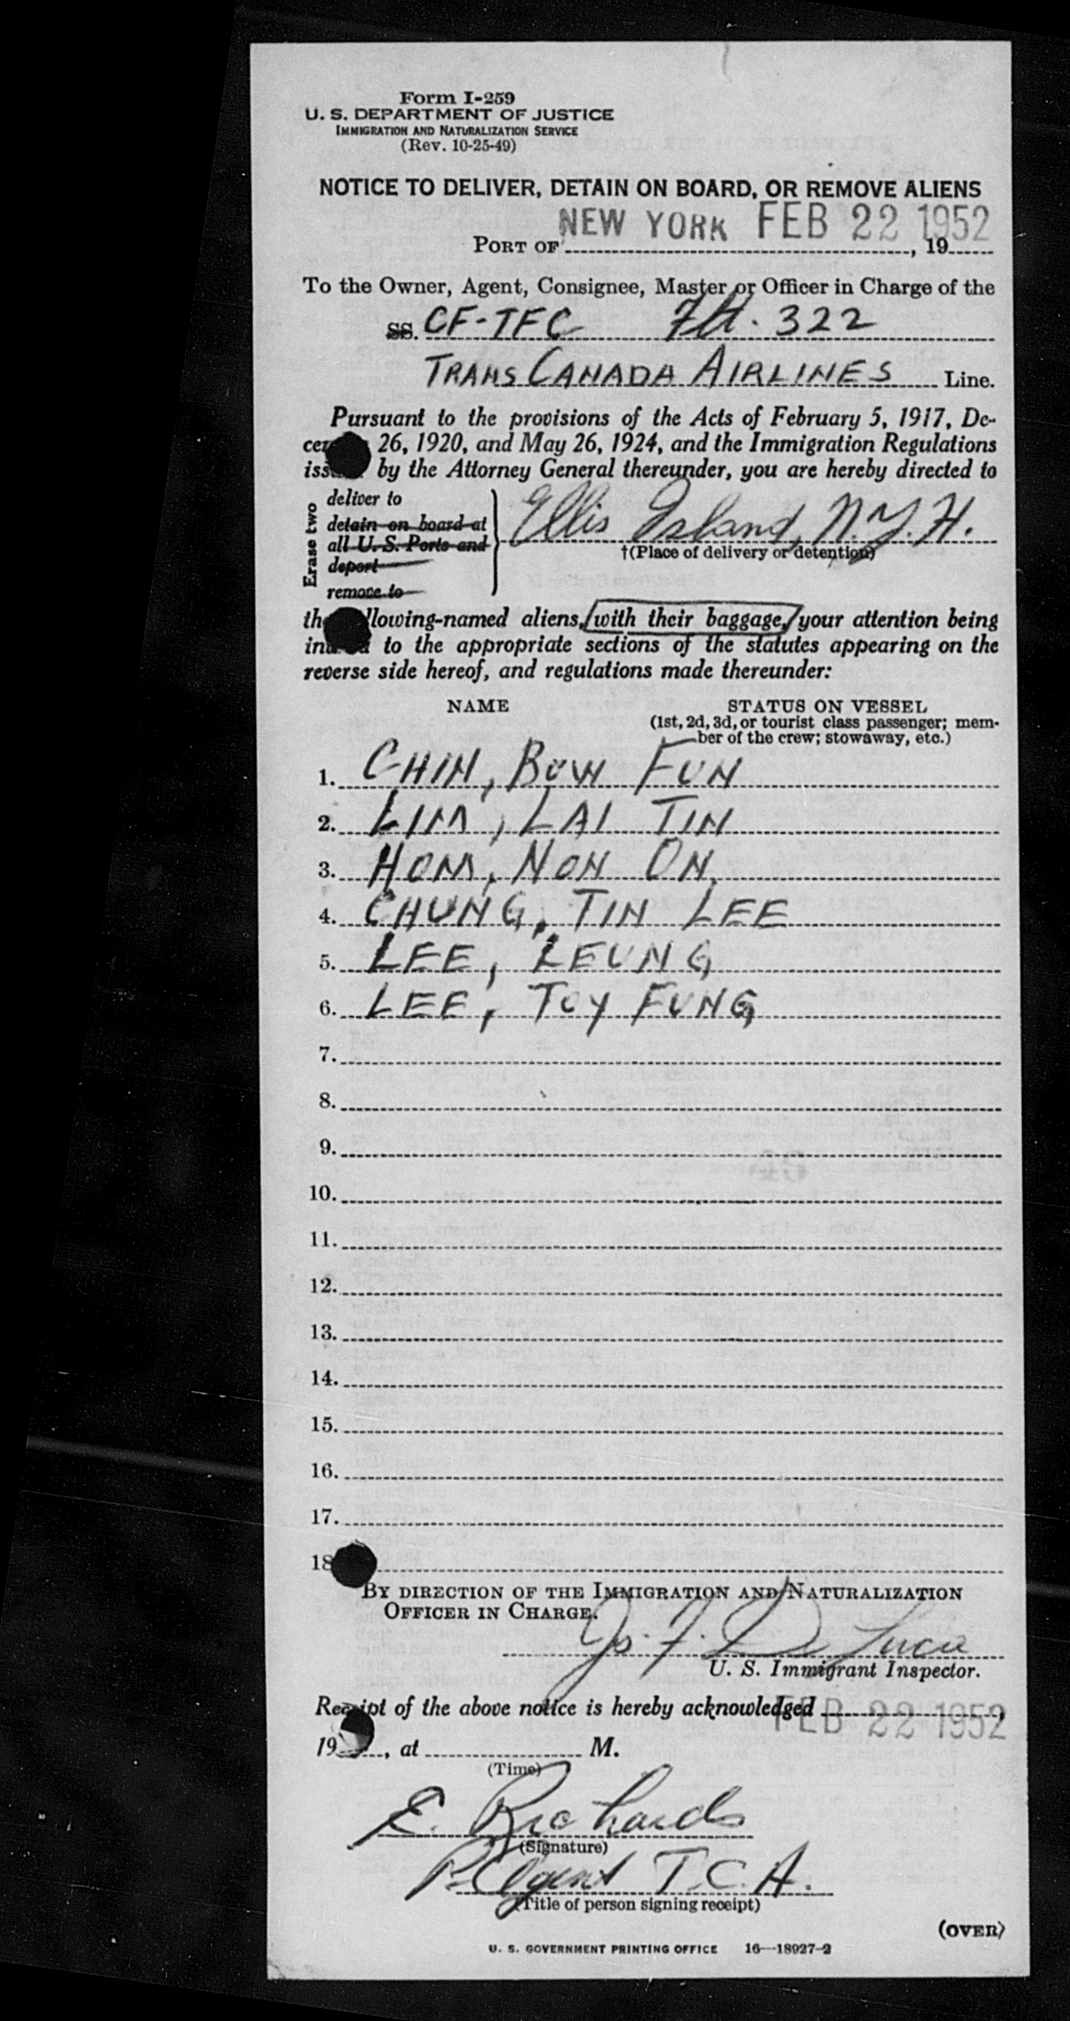 Form I-259
U. S. DEPARTMENT OF JUSTICE
IMMIGRATION AND NATURALIZATION SERVICE
(Rev. 10-25-49)
NOTICE TO DELIVER, DETAIN ON BOARD, OR REMOVE ALIENS
NEW YORK FEB 22 1952
PORT OF , 19
To the Owner, Agent, Consignee, Master or Officer in Charge of the
SS. CF-TFC Flt. 322
TRANS CANADA AIRLINES Line.
Pursuant to the provisions of the Acts of February 5, 1917, De-
26, 1920, and May 26, 1924, and the Immigration Regulations
by the Attorney General thereunder, you are hereby directed to
Erase two
deliver to
detain on board at
all U. S. Ports and
deport
remove to
Ellis Island, N.Y.H.
†(Place of delivery or detention)
lowing-named aliens, with their baggage, your attention being
to the appropriate sections of the statutes appearing on the
reverse side hereof, and regulations made thereunder:
NAME STATUS ON VESSEL
(1st, 2d, 3d, or tourist class passenger; mem-
ber of the crew; stowaway, etc.)
1. CHIN, BOW FUN
2. LIM, LAI TIN
3. HOM, NON ON
4. CHUNG, TIN LEE
5. LEE, LEUNG
6. LEE, TOY FUNG
7.
8.
9.
10.
11.
12.
13.
14.
15.
16.
17.
18
BY DIRECTION OF THE IMMIGRATION AND NATURALIZATION
OFFICER IN CHARGE.
Js. F. De Luca
U. S. Immigrant Inspector.
Receipt of the above notice is hereby acknowledged FEB 22 1952,
19 , at M.
(Time)
E. Richards
(Signature)
P. Agent T.C.A.
(Title of person signing receipt)
(OVER)
U. S. GOVERNMENT PRINTING OFFICE 16—18927-2